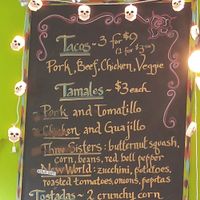 Tacos ~ 3 for $9
(1 for $3.50)
Pork, Beef, Chicken, Veggie
Tamales ~ $3 each
Pork and Tomatillo
Chicken and Guajillo
Three Sisters: butternut squash,
corn, beans, red bell pepper
New World: zucchini, potatoes,
roasted tomatoes, onions, pepitas
Tostadas ~ 2 crunchy corn